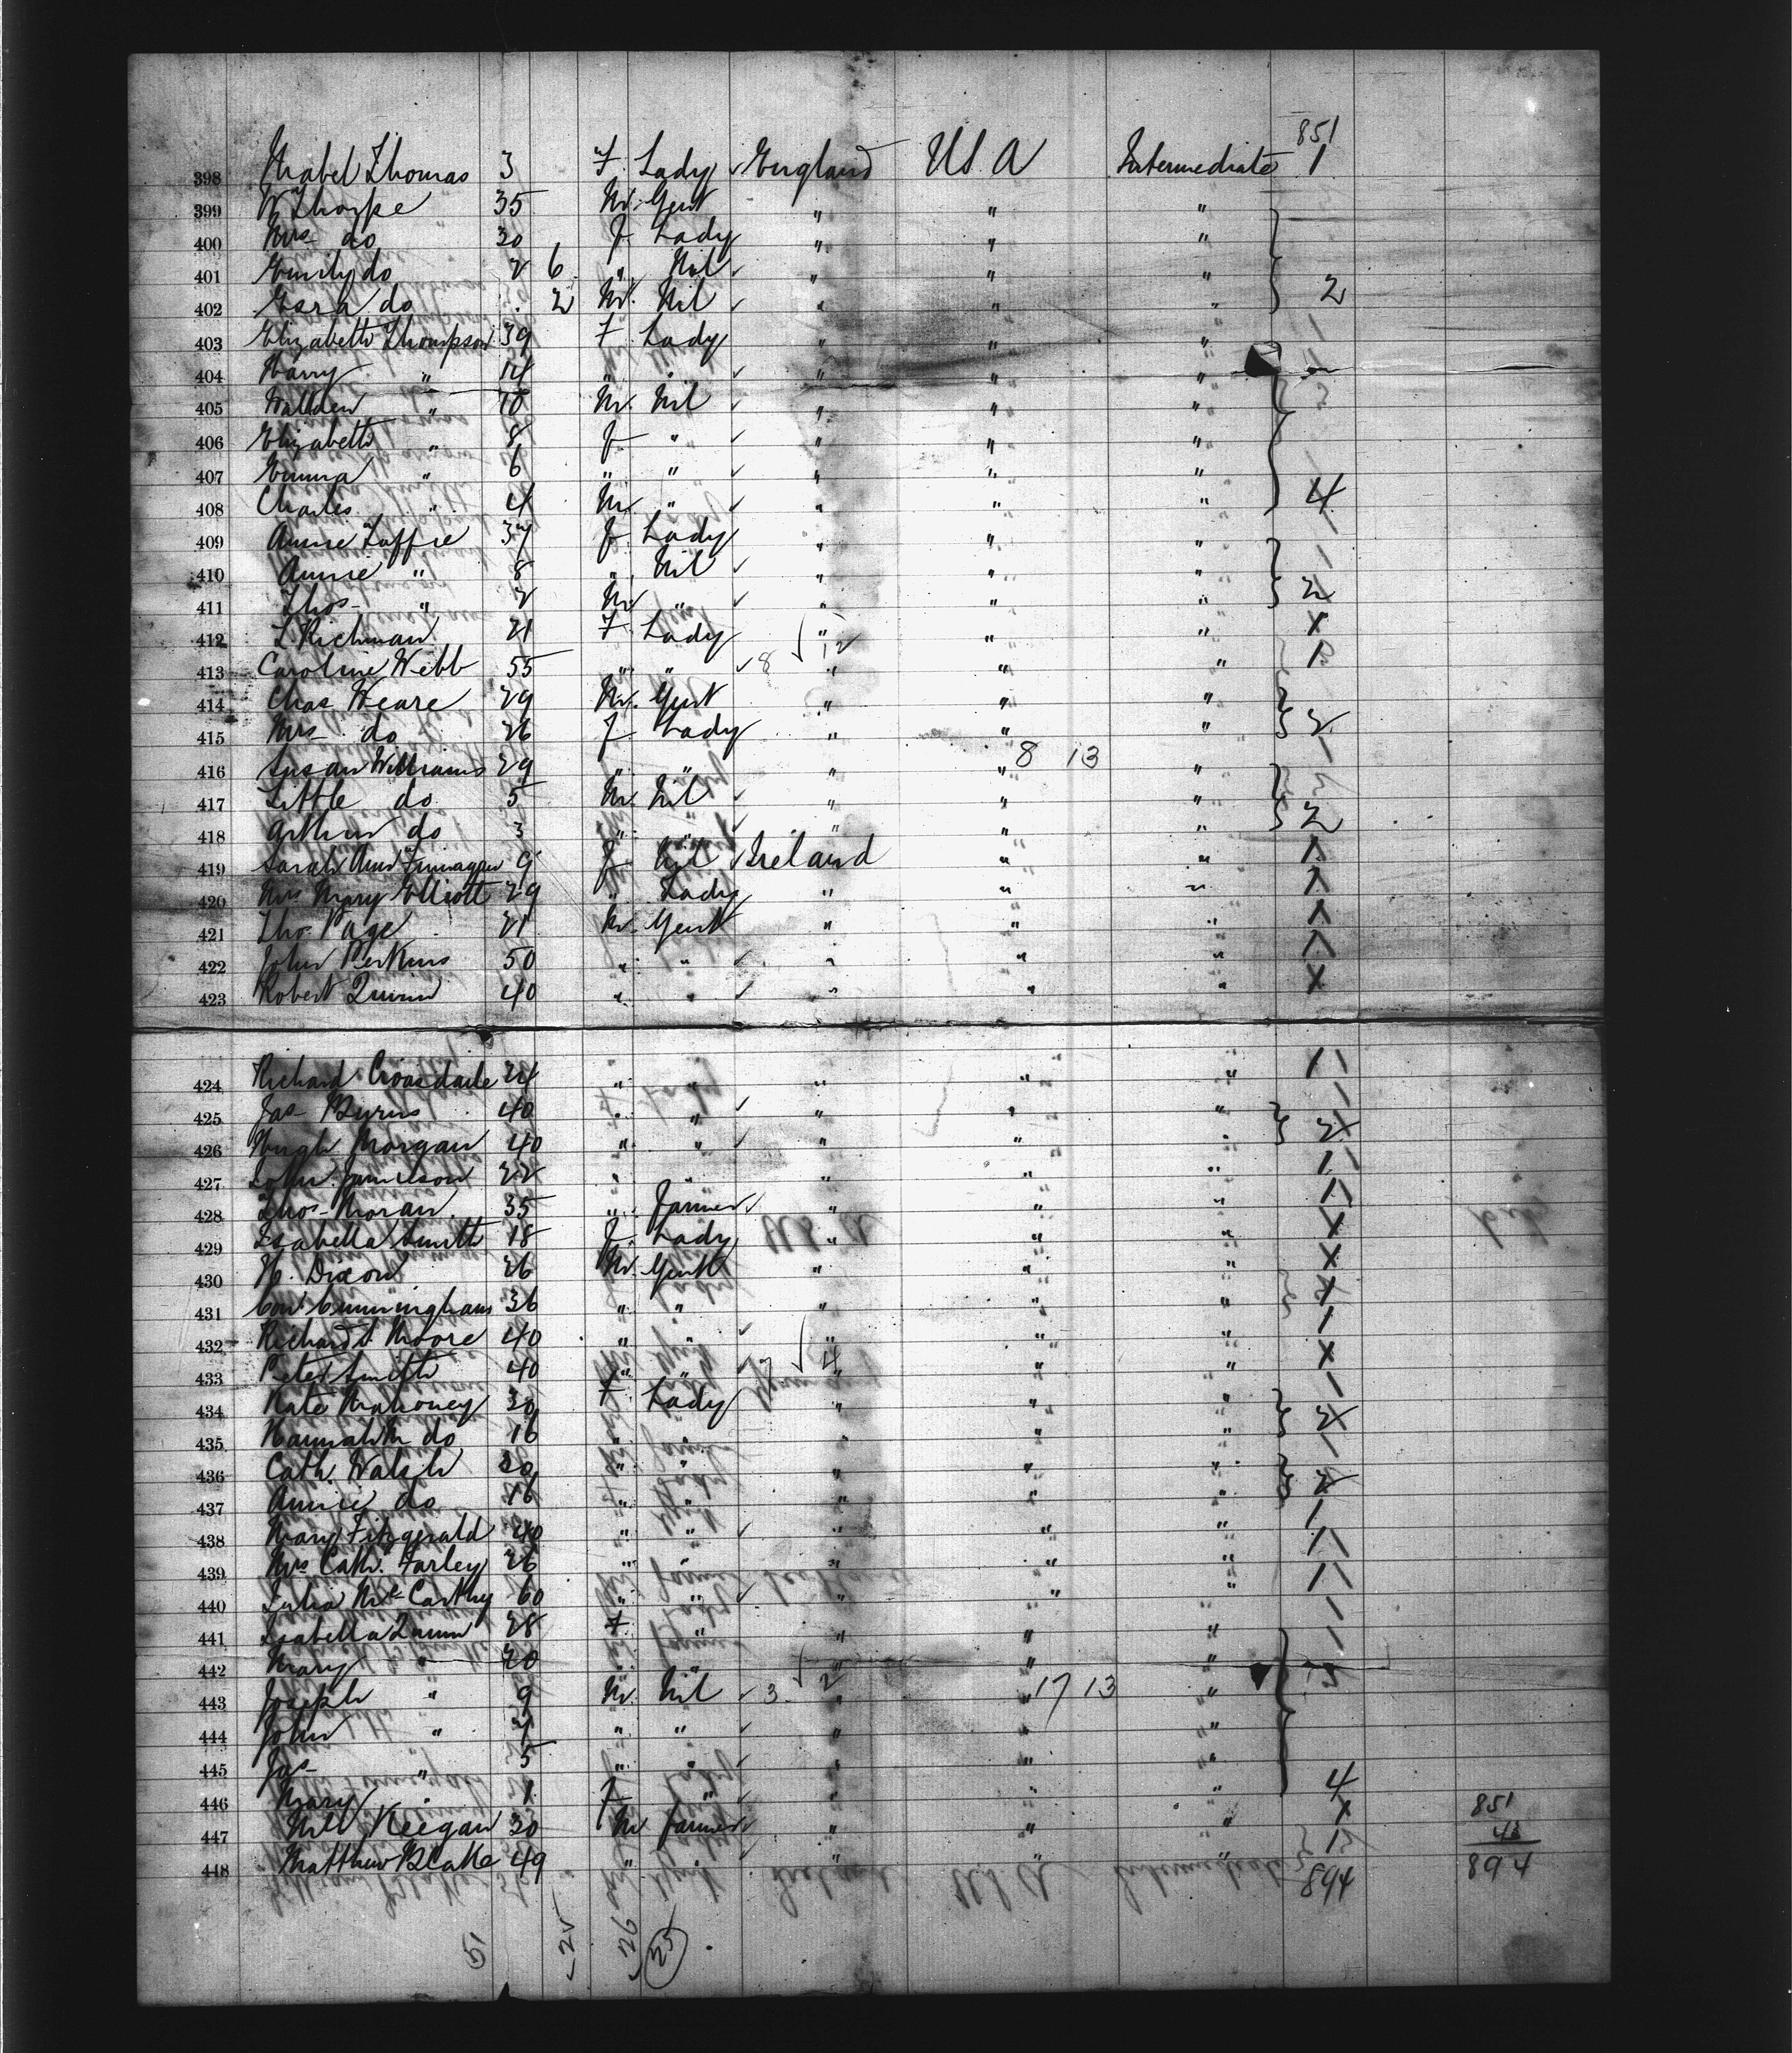 851
398 Mabel Thomas 3 F. Lady England U.S.A Intermediate 1
399 W Thorpe 35 M. Gent " " "
400 Mrs do 30 F. Lady " " "
401 Emily do 2 6 " Nil " " "
402 Esra do 2 M. Nil " " " 2
403 Elizabeth Thompson 39 F Lady " " "
404 Harry " 14 " " " "
405 " 10 M. Nil " " "
406 Elizabeth " 8 F " " " "
407 Emma " 6 " " " " "
408 Charles " 4 M " " " " 4
409 Annie Taffie 37 F Lady " " "
410 Annie " 8 " Nil " " "
411 Thos " 2 M " " " " 2
412 L Richman 21 F Lady " 12 " " 1
413 Caroline Webb 55 " " 8 " " " 1
414 Chas Weare 29 M. Gent " " "
415 Mrs do 26 F Lady " " " 2
416 Susan Williams 29 " " " " 8 13 "
417 Little do 5 M. Nil " " "
418 Arthur do 3 " " " " " 2
419 Sarah Ann 9 F Nil Ireland " " 1
420 Mrs Mary Elliott 29 " Lady " " " 1
421 Tho. Page 21 M. Gent " " " 1
422 John Perkins 50 " " " " " 1
423 Robert Quinn 40 " " " " " 1
424 Richard Croasdaile 24 " " " " " 1
425 Jas Burns 40 " " " " "
426 Hugh Morgan 40 " " " " " 2
427 John Jamieson 22 " " " " " 1
428 Thos Moran 35 " Farmer " " " 1
429 Isabella Smith 18 F. Lady " " " 1
430 H. Dixon 26 M. Gent " " " 1
431 Con Cunningham 36 " " " " " 1
432 Richard Moore 40 " " " " " 1
433 Peter Smith 40 " " 7 4 " " " 1
434 Kate Mahoney 30 F. Lady " " "
435 Hannah do 16 " " " " " 2
436 Cath. Walsh 20 " " " " "
437 Annie do 16 " " " " " 2
438 Mary Fitzgerald 40 " " " " " 1
439 Mrs Cath. Farley 26 " " " " " 1
440 Julia McCarthy 60 " " " " " 1
441 Isabella Quinn 28 F. " " " "
442 Mary " 20 " " " " "
443 Joseph " 9 M. Nil 3 2 " " 17 13 "
444 John " 7 " " " " "
445 Jas " 5 " " " " "
446 Mary " 1 F " " " " 4
447 Keegan 30 M Farmer " " " 1
448 Matthew Blake 49 " " " " " 1
894
851
43
894
51
22
26
25